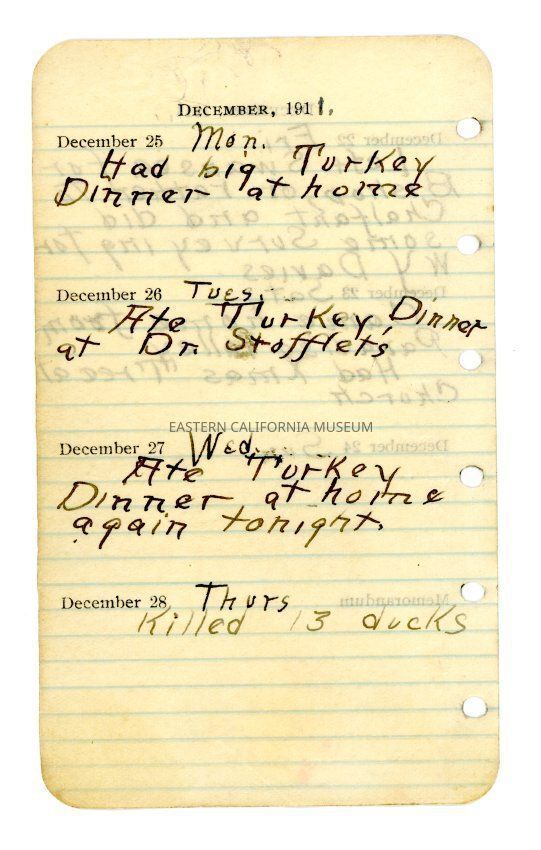 DECEMBER, 1911.
December 25 Mon.
Had big Turkey
Dinner at home
December 26 Tues.
Ate Turkey Dinner
at Dr. Stofflets
EASTERN CALIFORNIA MUSEUM
December 27 Wed.
Ate Turkey
Dinner at home
again tonight.
December 28 Thurs
Killed 13 ducks